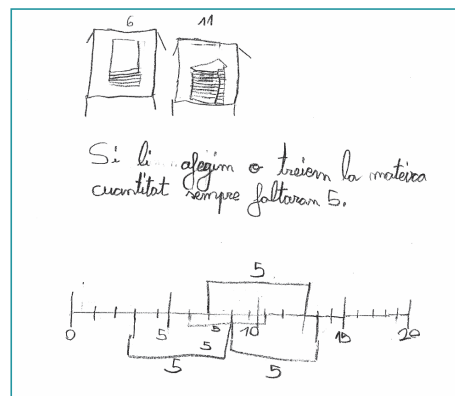 6 11
Si li afegim o treiem la mateixa
cuantitat sempre faltaran 5.
5
0 5 5 10 15 20
5
5 5